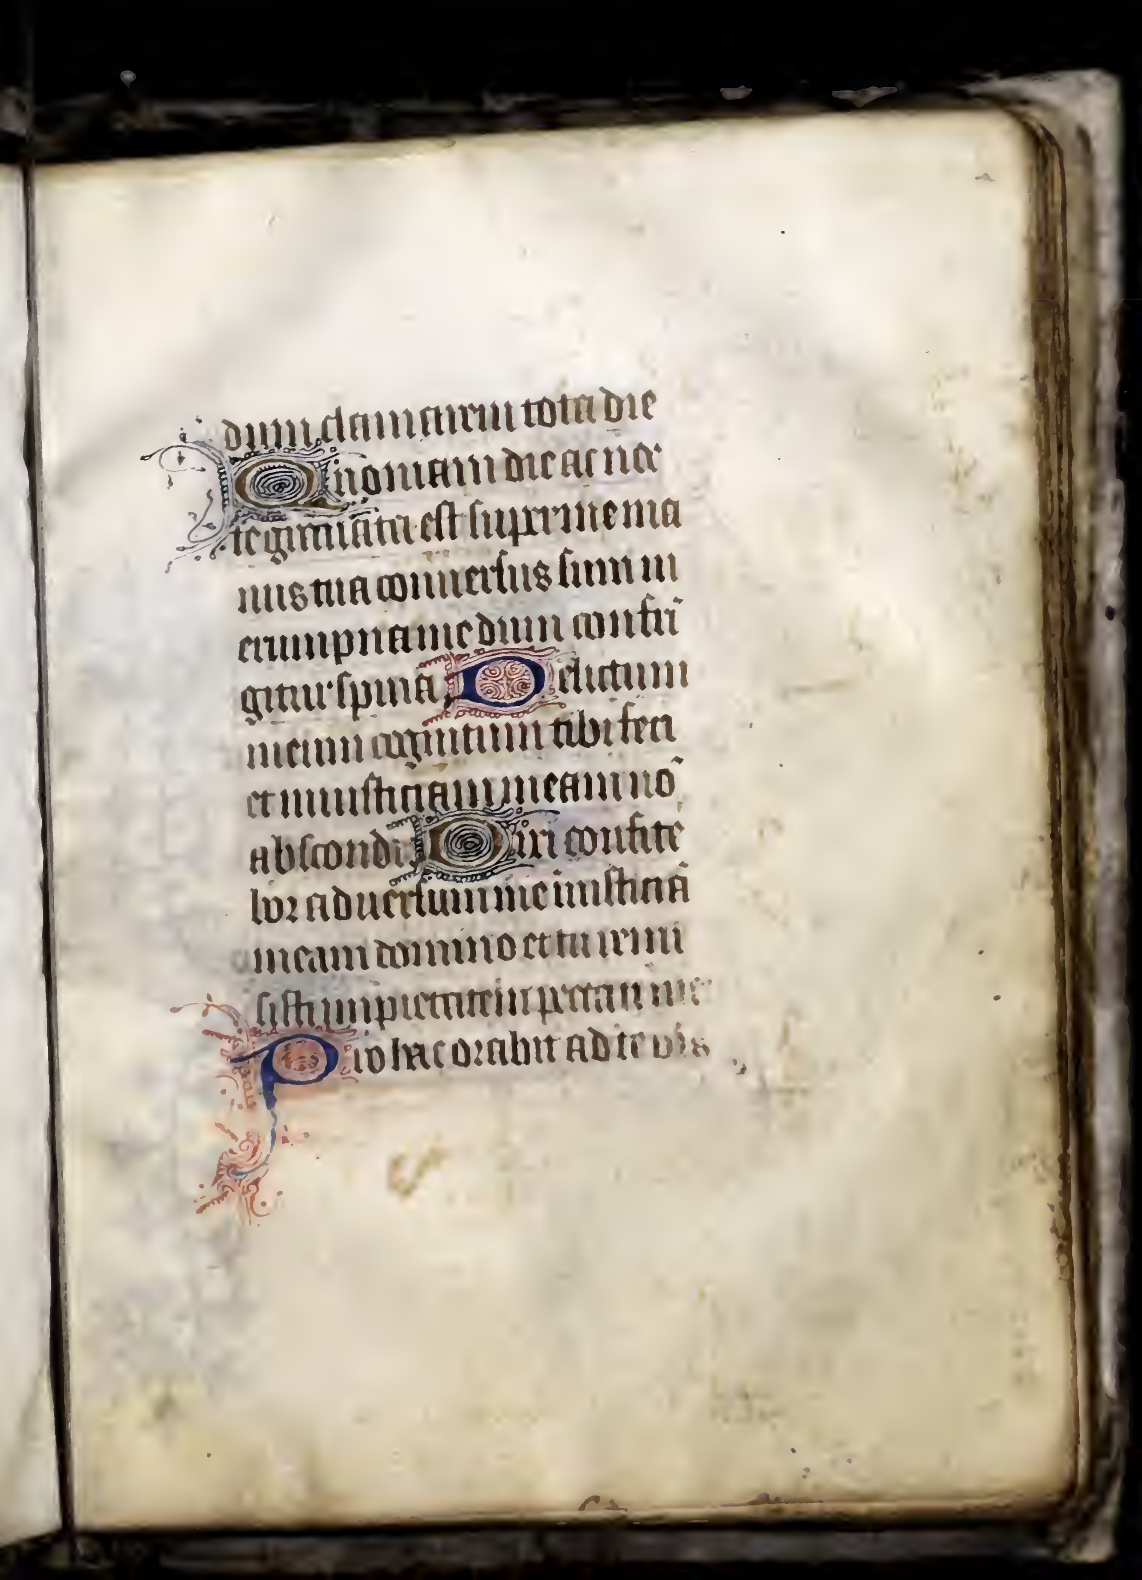 dum clamarem tota die
Quoniam die ac noc
te gravata est super me ma
nus tua conversus sum in
erumpna me dum confri
gitur spina Delictum
meum cognitum tibi feci
et iniusticiam meam nō
abscondi Dixi confite
bor adversum me iniusticiā
meam domino et tu remi
sisti impietatem peccati mei
Pro hac orabit ad te omīs